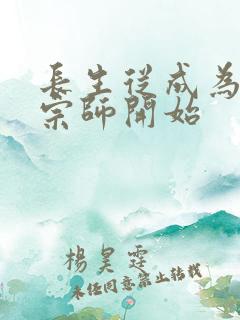 長生從成為
宗師開始
楊昊霆
未經同意禁止轉載